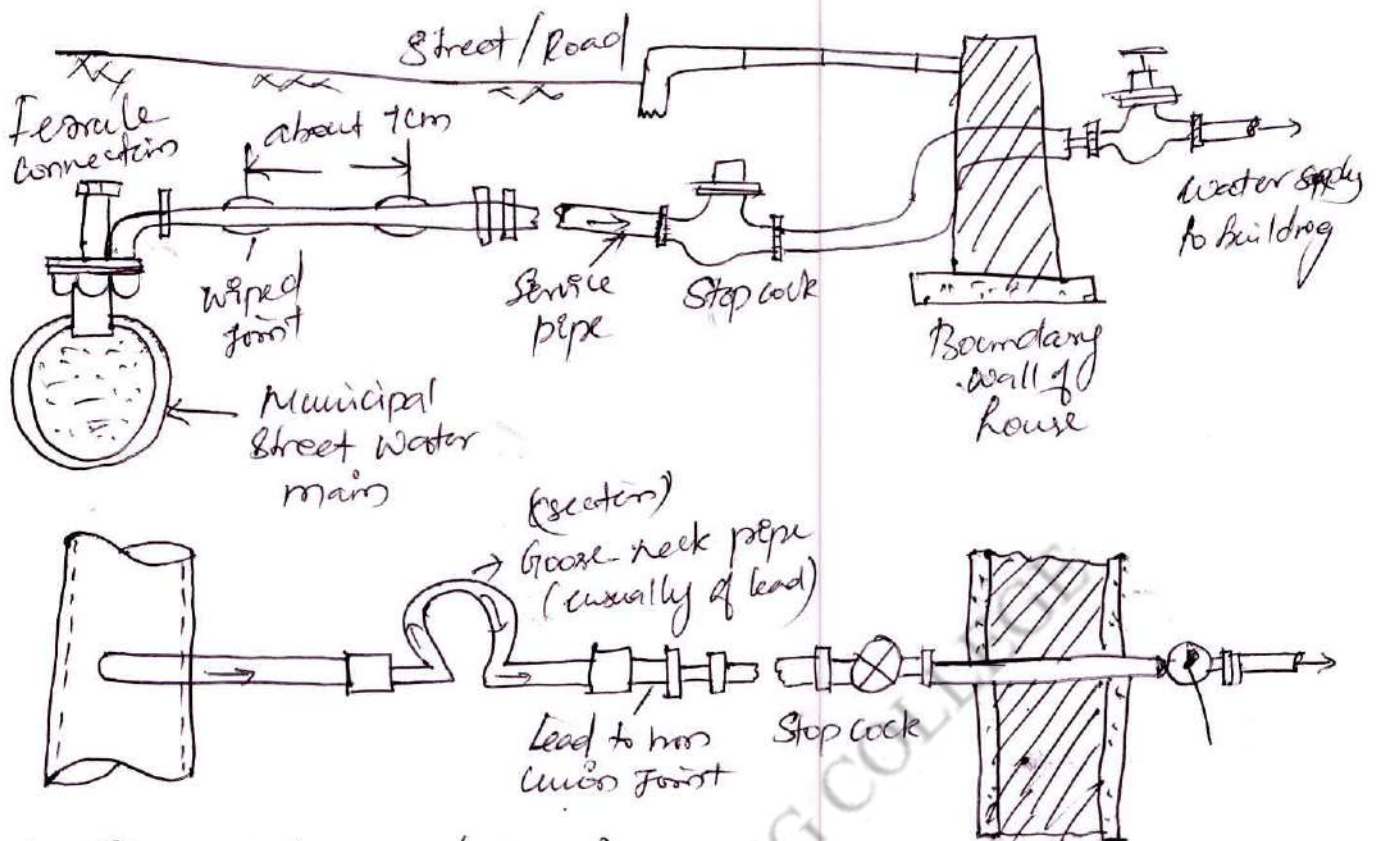 Street/Road
Ferrule
Connection
about 7cm
wiped
Joint
Service
pipe
Stop cock
Boundary
wall of
house
water supply
to building
Municipal
Street Water
main
(section)
Goose-neck pipe
(usually of lead)
Lead to iron
Union Joint
Stop cock
G COLLEGE